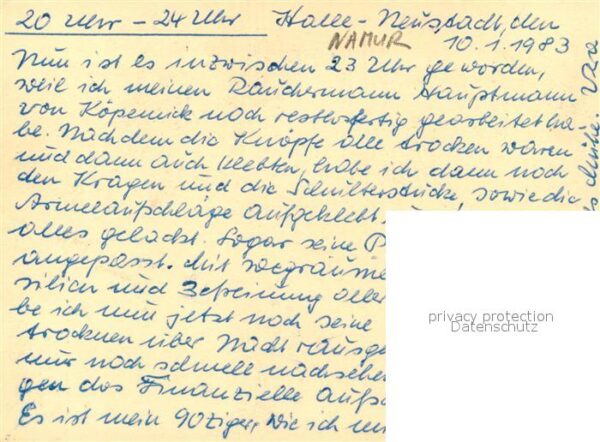 20 Uhr – 24 Uhr Halle-Neustadt, den
NAMUR 10.1.1983
Nun ist es inzwischen 23 Uhr geworden,
weil ich meinen Räuchermann Hauptmann
von Köpenick noch restlosfertig gearbeitet ha
be. Nachdem die Knöpfe alle trocken waren
und dann auch klebten, habe ich dann noch
den Kragen und die Schulterstücke, sowie die
Armelaufschläge aufgeklebt
alles gelackt. Sogar seine P
angepasst. Mit
silien und aller
be ich nun jetzt noch seine
trocknen über Nacht rausge
nur noch schnell nachsehen
gen das Finanzielle aufs
Es ist mein 90ziger, wie ich
privacy protection
Datenschutz